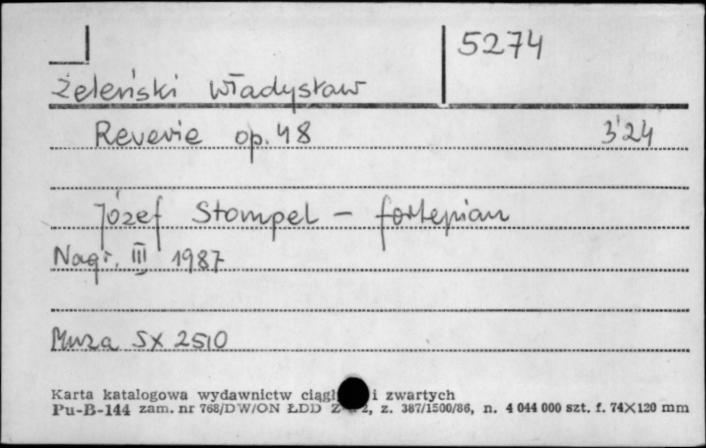 5274
Żeleński Władysław
Reverie op. 48 3'24
Józef Stompel - fortepian
Nagr. III 1987
Muza SX 2510
Karta katalogowa wydawnictw ciągł i zwartych
Pu-B-144 zam. nr 768/DW/ON ŁDD Z 2, z. 387/1500/86, n. 4 044 000 szt. f. 74X120 mm